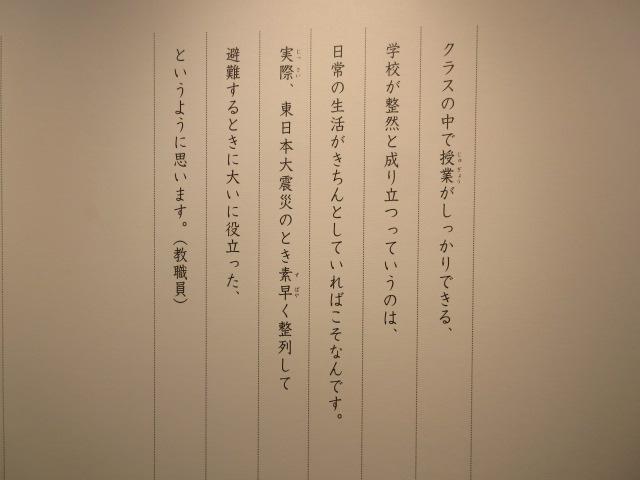 クラスの中で授業がしっかりできる、
学校が整然と成り立つっていうのは、
日常の生活がきちんとしていればこそなんです。
実際、東日本大震災のとき素早く整列して
避難するときに大いに役立った、
というように思います。（教職員）